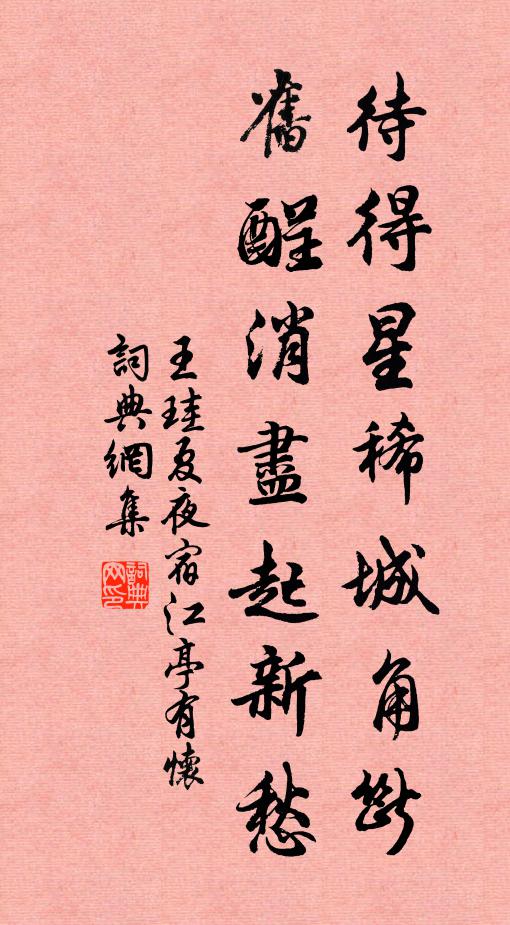 待得星稀城角斷
舊酲消盡起新愁
王珪夏夜宿江亭有懷
詞典網集
詞典
网印